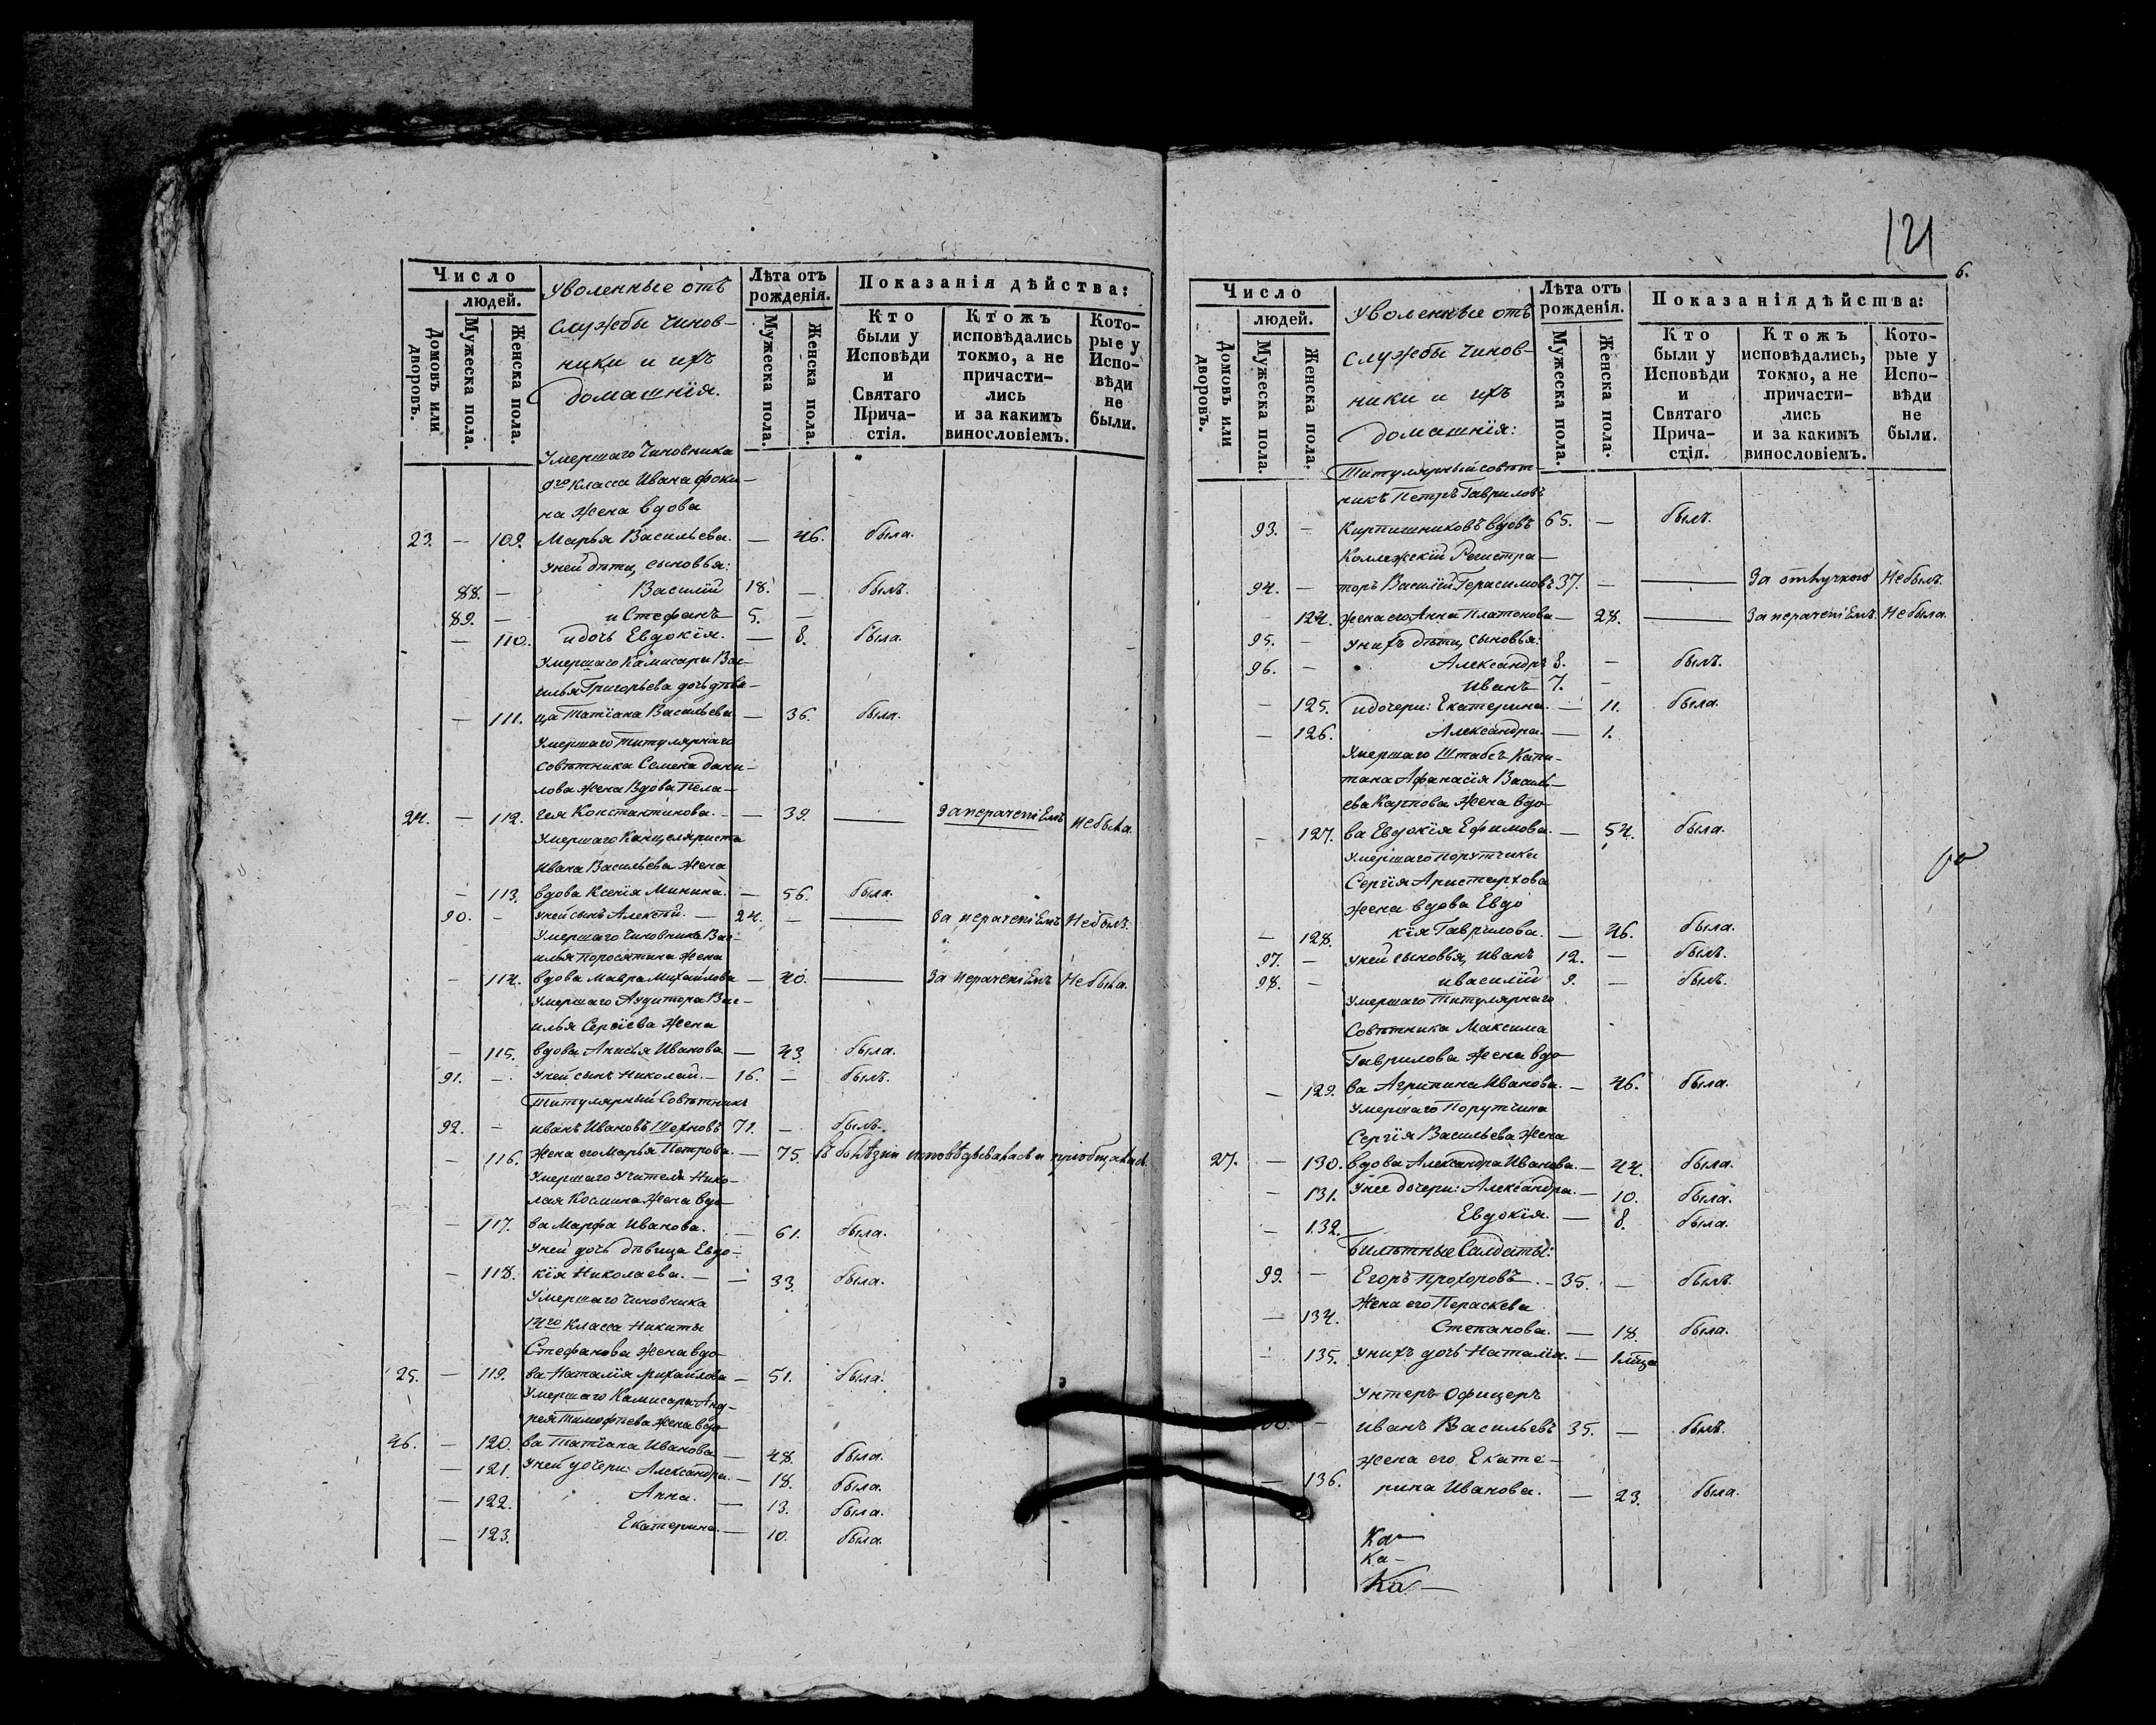 Число
людей.
Домовъ или дворовъ.
Мужеска пола.
Женска пола.
Уволенные отъ
службы чинов-
ники и ихъ
домашнія.
Лѣта отъ
рожденія.
Мужеска пола.
Женска пола.
Показанія дѣйства:
Кто
были у
Исповѣди
и
Святаго
Прича-
стія.
Ктожъ
исповѣдались
токмо, а не
причасти-
лись
и за какимъ
винословіемъ.
Кото-
рые у
Испо-
вѣди
не
были.
Умершаго Чиновника
9го класса Ивана Фоки-
на жена вдова
23. — 109. Марья Васильева. — 46. была.
У ней дѣти, сыновья:
88. — Василій 18. — былъ.
89. — и Стефанъ 5. —
— 110. и дочь Евдокія. — 8. была.
Умершаго Камисара Вас-
илья Григорьева дочь дѣви-
— 111. ца Татіана Васильева — 36. была.
Умершаго титулярнаго
совѣтника Семена Дани-
лова жена вдова Пела-
24. — 112. гея Константинова. — 39. — За нераченіемъ не была.
Умершаго Канцеляриста
Ивана Васильева жена
— 113. вдова Ксенія Минина. — 56. была.
90. — У ней сынъ Алексѣй. — 24. — — За нераченіемъ Небылъ.
Умершаго Чиновника Вас-
илья Поросятина жена
— 114. вдова Мавра Михайлова — 40. — За нераченіемъ Не была.
Умершаго Аудитора Вас-
илья Сергіева жена
— 115. вдова Анисья Иванова — 43. была.
91. — У ней сынъ Николай. — 16. — былъ.
Титулярный Совѣтникъ
92. — Иванъ Ивановъ Шехновъ 71. — былъ.
— 116. Жена его Марья Петрова. — 75. въ болѣзни исповѣдывалась и пріобщалась.
Умершаго Учителя Нико-
лая Космина жена вдо-
— 117. ва Марфа Иванова. — 61. была.
У ней дочь дѣвица Евдо-
— 118. кія Николаева. — — 33. была.
Умершаго Чиновника
14го класса Никиты
Стефанова жена вдо-
25. — 119. ва Наталія Михайлова — 51. была.
Умершаго Камисара Анд-
рея Тимофѣева жена вдо-
26. — 120. ва Татіана Иванова — 48. была.
— 121. У ней дочери: Александра. — 18. была.
— 122. Анна. — 13. была.
— 123. Екатерина. — 10. была.
121
6.
Число
людей.
Домовъ или дворовъ.
Мужеска пола.
Женска пола.
Уволенные отъ
службы чинов-
ники и ихъ
домашнія:
Лѣта отъ
рожденія.
Мужеска пола.
Женска пола.
Показанія дѣйства:
Кто
были у
Исповѣди
и
Святаго
Прича-
стія.
Ктожъ
исповѣдались,
токмо, а не
причасти-
лись
и за какимъ
винословіемъ.
Кото-
рые у
Испо-
вѣди
не
были.
Титулярный совѣт-
никъ Петръ Гавриловъ
93. — Кирпишниковъ вдовъ 65. — былъ.
Коллежскій Регистра-
94. — торъ Василій Герасимовъ 37. — — За отлучкою Небылъ.
124. Жена его Анна Платонова — 28. — За нераченіемъ. Не была.
95. — У нихъ дѣти, сыновья:
96. — Александръ 8. — былъ.
Иванъ 7. —
— 125. и дочери: Екатерина. — 11. была.
— 126. Александра. — 1.
Умершаго Штабсъ Капи-
тана Афанасія Василь-
ева Карпова жена вдо-
— 127. ва Евдокія Ефимова. — 54. была.
Умершаго порутчика
Сергія Аристархова
жена вдова Евдо
— 128. кія Гаврилова. — 46. была.
97. — У ней сыновья, Иванъ 12. — былъ.
98. — и василій 9. — былъ.
Умершаго титулярнаго
Совѣтника Максима
Гаврилова жена вдо-
— 129. ва Агрипина Иванова. — 46. была.
Умершаго Порутчика
Сергія Васильева жена
27. — 130. вдова Александра Иванова. — 44. была.
— 131. У нее дочери: Александра. — 10. была.
— 132. Евдокія. — 8. была.
Билѣтные Салдаты:
99. — Егоръ Прохоровъ. — 35. — былъ.
Жена его Параскева
— 134. Степанова. — 18. была.
— 135. У нихъ дочь Наталія. —
Унтеръ Офицеръ
— Иванъ Васильевъ 35. — былъ.
Жена его Екате-
— 136. рина Иванова. — 23. была.
Ка-
Ка-
Ка-